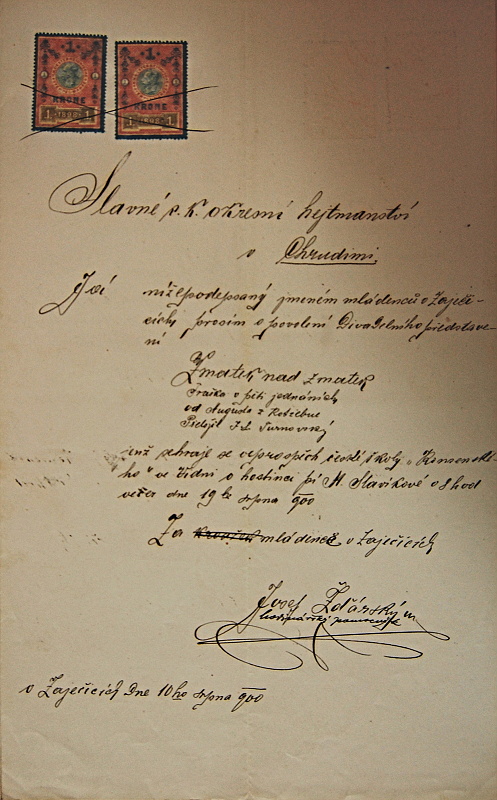 1 1
KRONE KRONE
1 1898 1 1 1898 1
Slavné c. k. okresní hejtmanství
v Chrudimi.
Já nížepodepsaný jménem mládenců v Zaječi-
cích, prosím o povolení Divadelního představe-
ní
Zmatek nad zmatek
Fraška v pěti jednáních
od Augusta z Kotzebue
Přeložil J. L. Turnovský
jenž sehraje se ve prospěch školy „Komenské-
ho" ve Vídni v hostinci pí M. Slavíkové o 8 hod
večer dne 19ho srpna 900
Za mládence v Zaječicích
Josef Žďárský
v Zaječicích Dne 10ho srpna 900